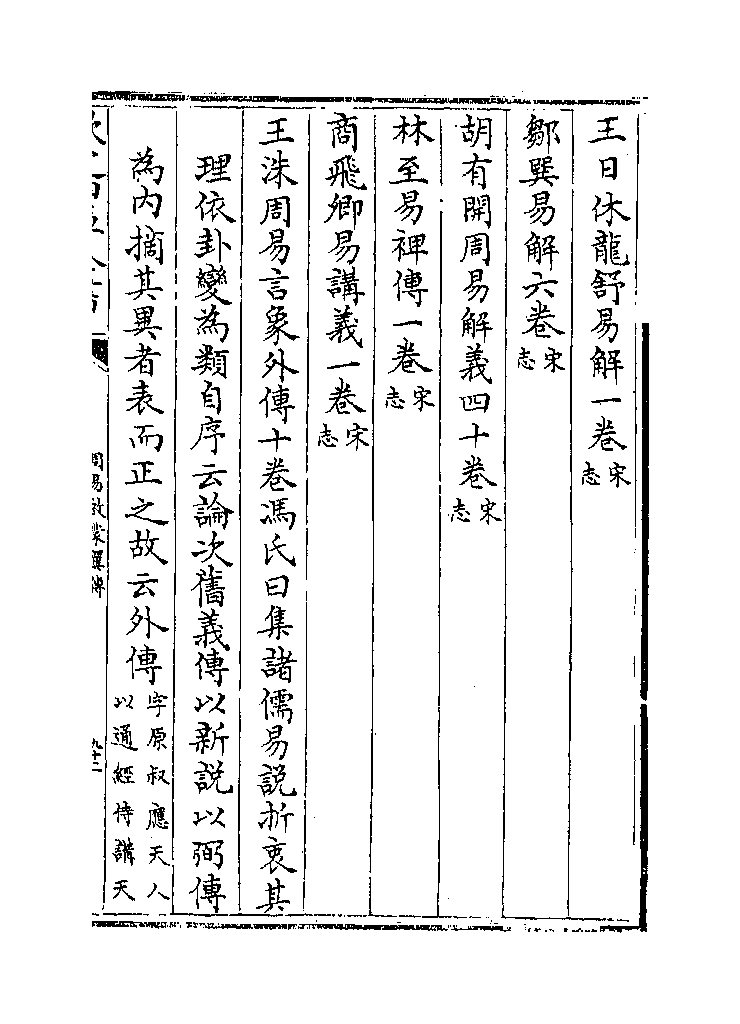 王日休龍舒易解一卷宋志
鄒巽易解六卷宋志
胡有開周易解義四十卷宋志
林至易裨傳一卷宋志
商飛卿易講義一卷宋志
王洙周易言象外傳十卷馮氏曰集諸儒易說折衷其
理依卦變為類自序云論次舊義傳以新說以弼傳
為内摘其異者表而正之故云外傳字原叔應天人以通經侍講天
周易啟蒙翼傳
九十二